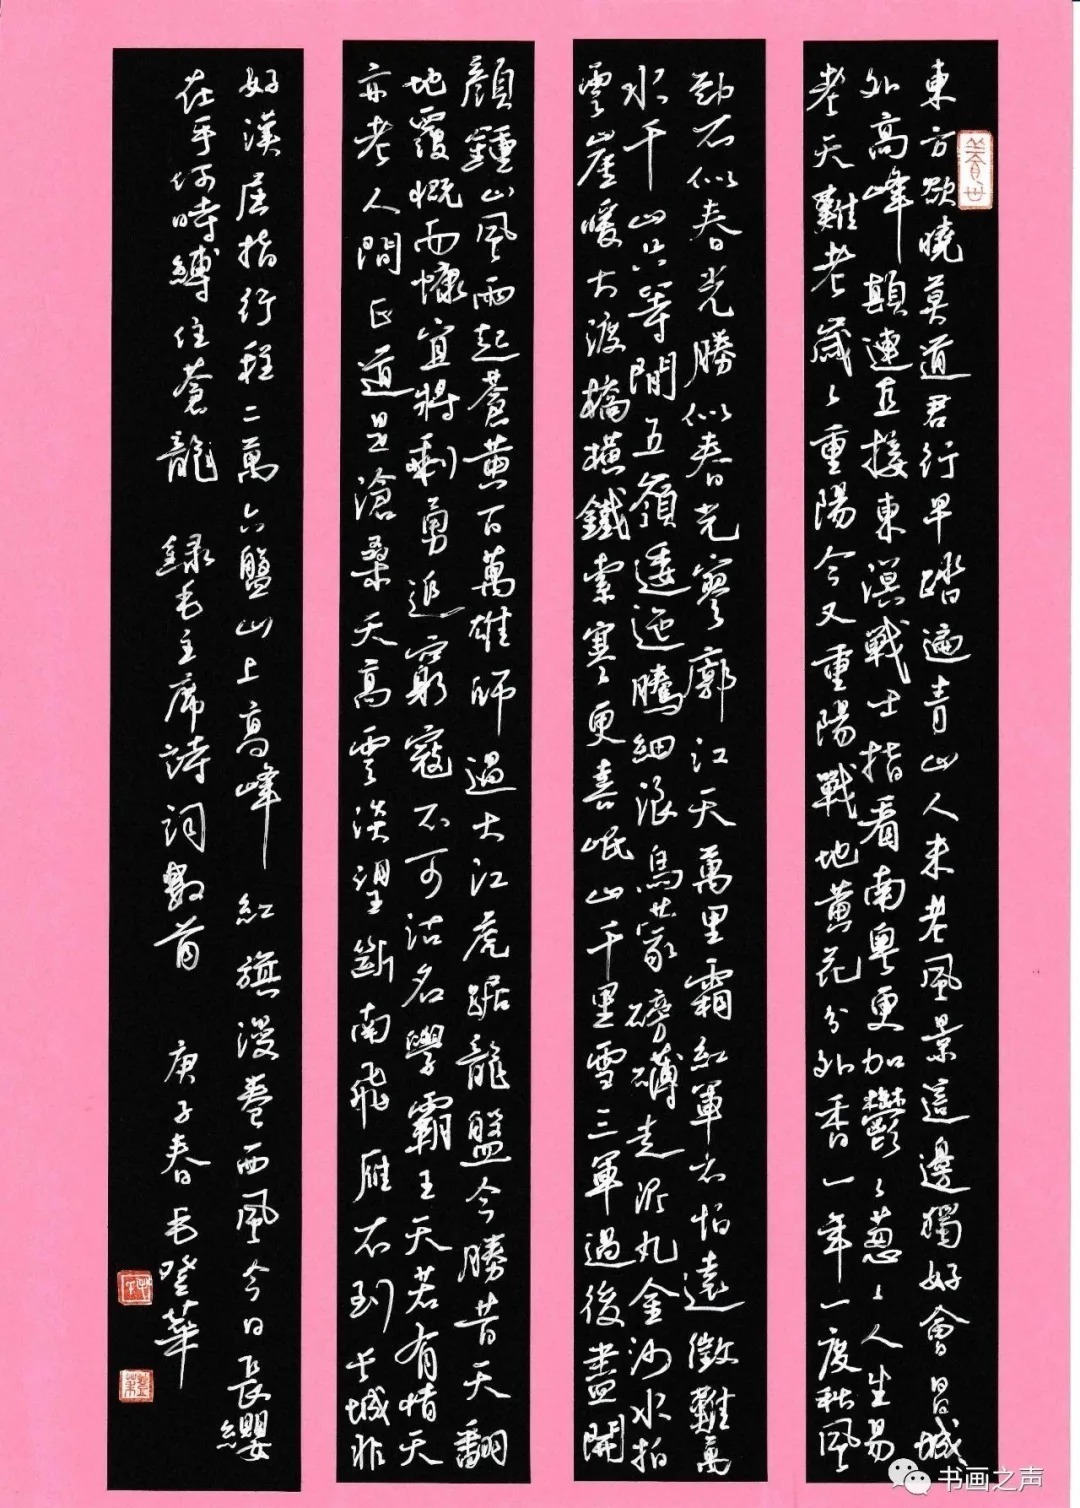 東方欲曉莫道君行早踏遍青山人未老風景這邊獨好會昌城
外高峰顛連直接東溟戰士指看南粵更加鬱々蔥々人生易
老天難老歲々重陽今又重陽戰地黃花分外香一年一度秋風
勁不似春光勝似春光寥廓江天萬里霜紅軍不怕遠徵難萬
水千山只等閒五嶺逶迤騰細浪烏蒙磅礴走泥丸金沙水拍
雲崖暖大渡橋橫鐵索寒更喜岷山千里雪三軍過後盡開
顏鍾山風雨起蒼黃百萬雄師過大江虎踞龍盤今勝昔天翻
地覆慨而慷宜將剩勇追窮寇不可沽名學霸王天若有情天
亦老人間正道是滄桑天高雲淡望斷南飛雁不到長城非
好漢屈指行程二萬六盤山上高峰紅旗漫卷西風今日長纓
在手何時縛住蒼龍 錄毛主席詩詞數首 庚子春毛登華
书画之声